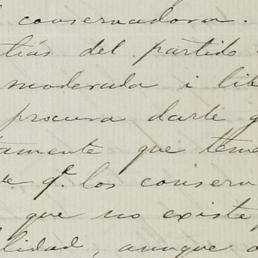 conservadora.
tiás del partido
moderada i lib
procura darle g
tamente que tem
te qe. los conserv
que no existe
lidad, aunque